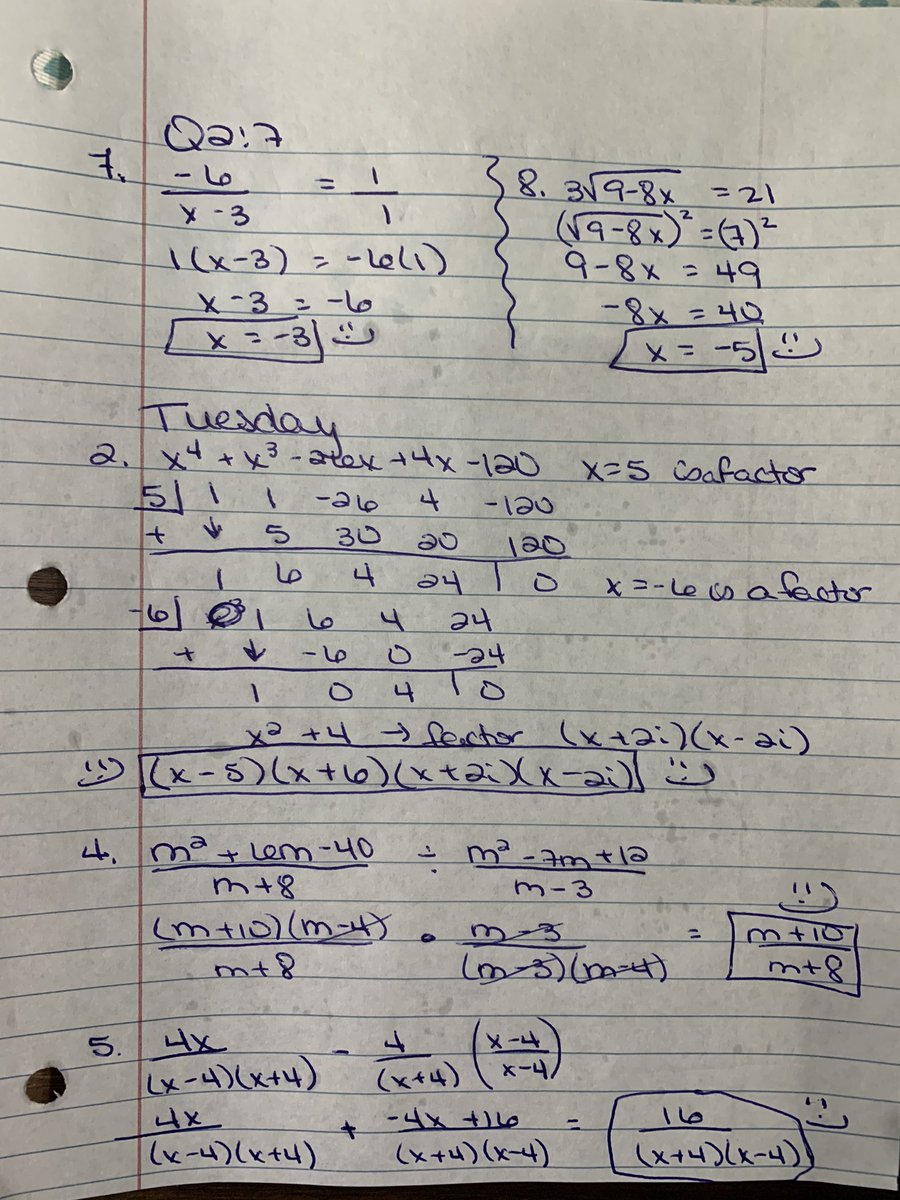 Q2:7
7. -6/(x-3) = 1/1
1(x-3) = -6(1)
x-3 = -6
x = -3
8. 3√(9-8x) = 21
(√(9-8x))² = (7)²
9-8x = 49
-8x = 40
x = -5
Tuesday
2. x⁴ + x³ - 26x + 4x - 120 x=5 is a factor
5| 1 1 -26 4 -120
+ ↓ 5 30 20 120
1 6 4 24 | 0 x=-6 is a factor
-6| 1 6 4 24
+ ↓ -6 0 -24
1 0 4 | 0
x² + 4 → factor (x+2i)(x-2i)
(x-5)(x+6)(x+2i)(x-2i)
4. (m² + 6m - 40)/(m+8) ÷ (m² - 7m + 12)/(m-3)
(m+10)(m-4)/(m+8) • (m-3)/((m-3)(m-4)) = (m+10)/(m+8)
5. 4x/((x-4)(x+4)) - 4/(x+4) ((x-4)/(x-4))
4x/((x-4)(x+4)) + (-4x+16)/((x+4)(x-4)) = 16/((x+4)(x-4))